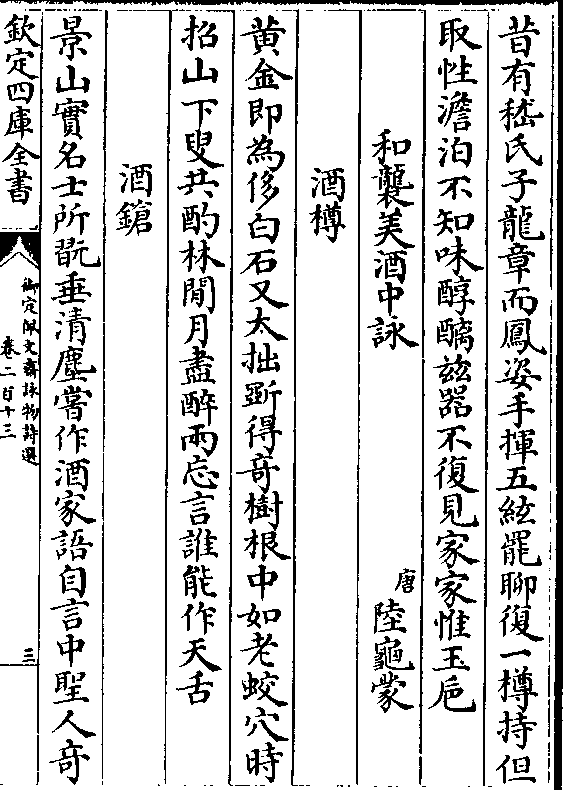 昔有嵇氏子龍章而鳳姿手揮五絃罷聊復一樽持但
取性澹泊不知味醇醨兹器不復見家家惟玉巵
和襲美酒中詠 唐 陸龜蒙
酒樽
黄金即為侈白石又太拙斵得竒樹根中如老蛟穴時
招山下叟共酌林間月盡醉兩忘言誰能作天舌
酒鎗
景山實名士所翫垂清塵嘗作酒家語自言中聖人竒
欽定四庫全書
御定佩文齋詠物詩選
卷二百十三
三